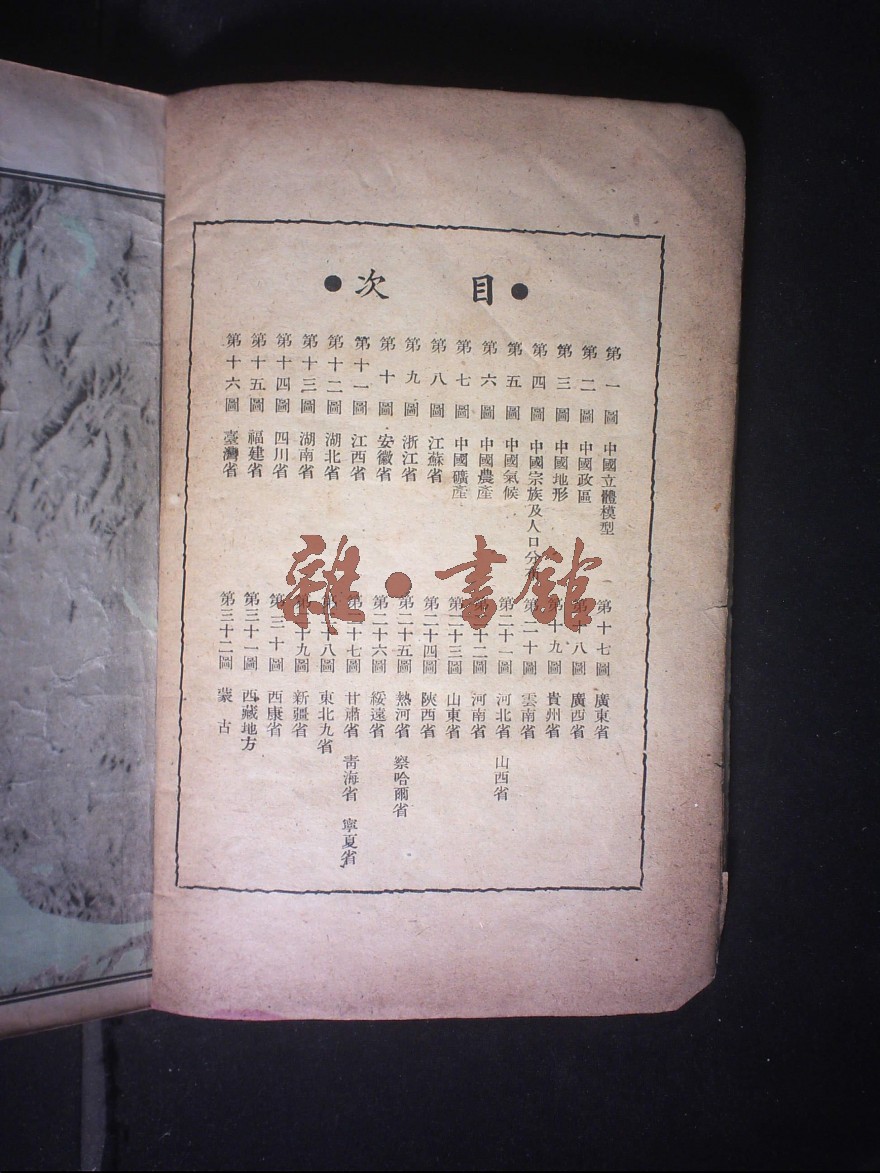 ●目　次●
第一圖　中國立體模型
第二圖　中國政區
第三圖　中國地形
第四圖　中國宗族及人口分布
第五圖　中國氣候
第六圖　中國農產
第七圖　中國礦產
第八圖　江蘇省
第九圖　浙江省
第十圖　安徽省
第十一圖　江西省
第十二圖　湖北省
第十三圖　湖南省
第十四圖　四川省
第十五圖　福建省
第十六圖　臺灣省
第十七圖　廣東省
第十八圖　廣西省
第十九圖　貴州省
第二十圖　雲南省
第二十一圖　河北省　山西省
第二十二圖　河南省
第二十三圖　山東省
第二十四圖　陝西省
第二十五圖　熱河省　察哈爾省
第二十六圖　綏遠省
第二十七圖　甘肅省　青海省　寧夏省
第二十八圖　東北九省
第二十九圖　新疆省
第三十圖　西康省
第三十一圖　西藏地方
第三十二圖　蒙古
雜·書館